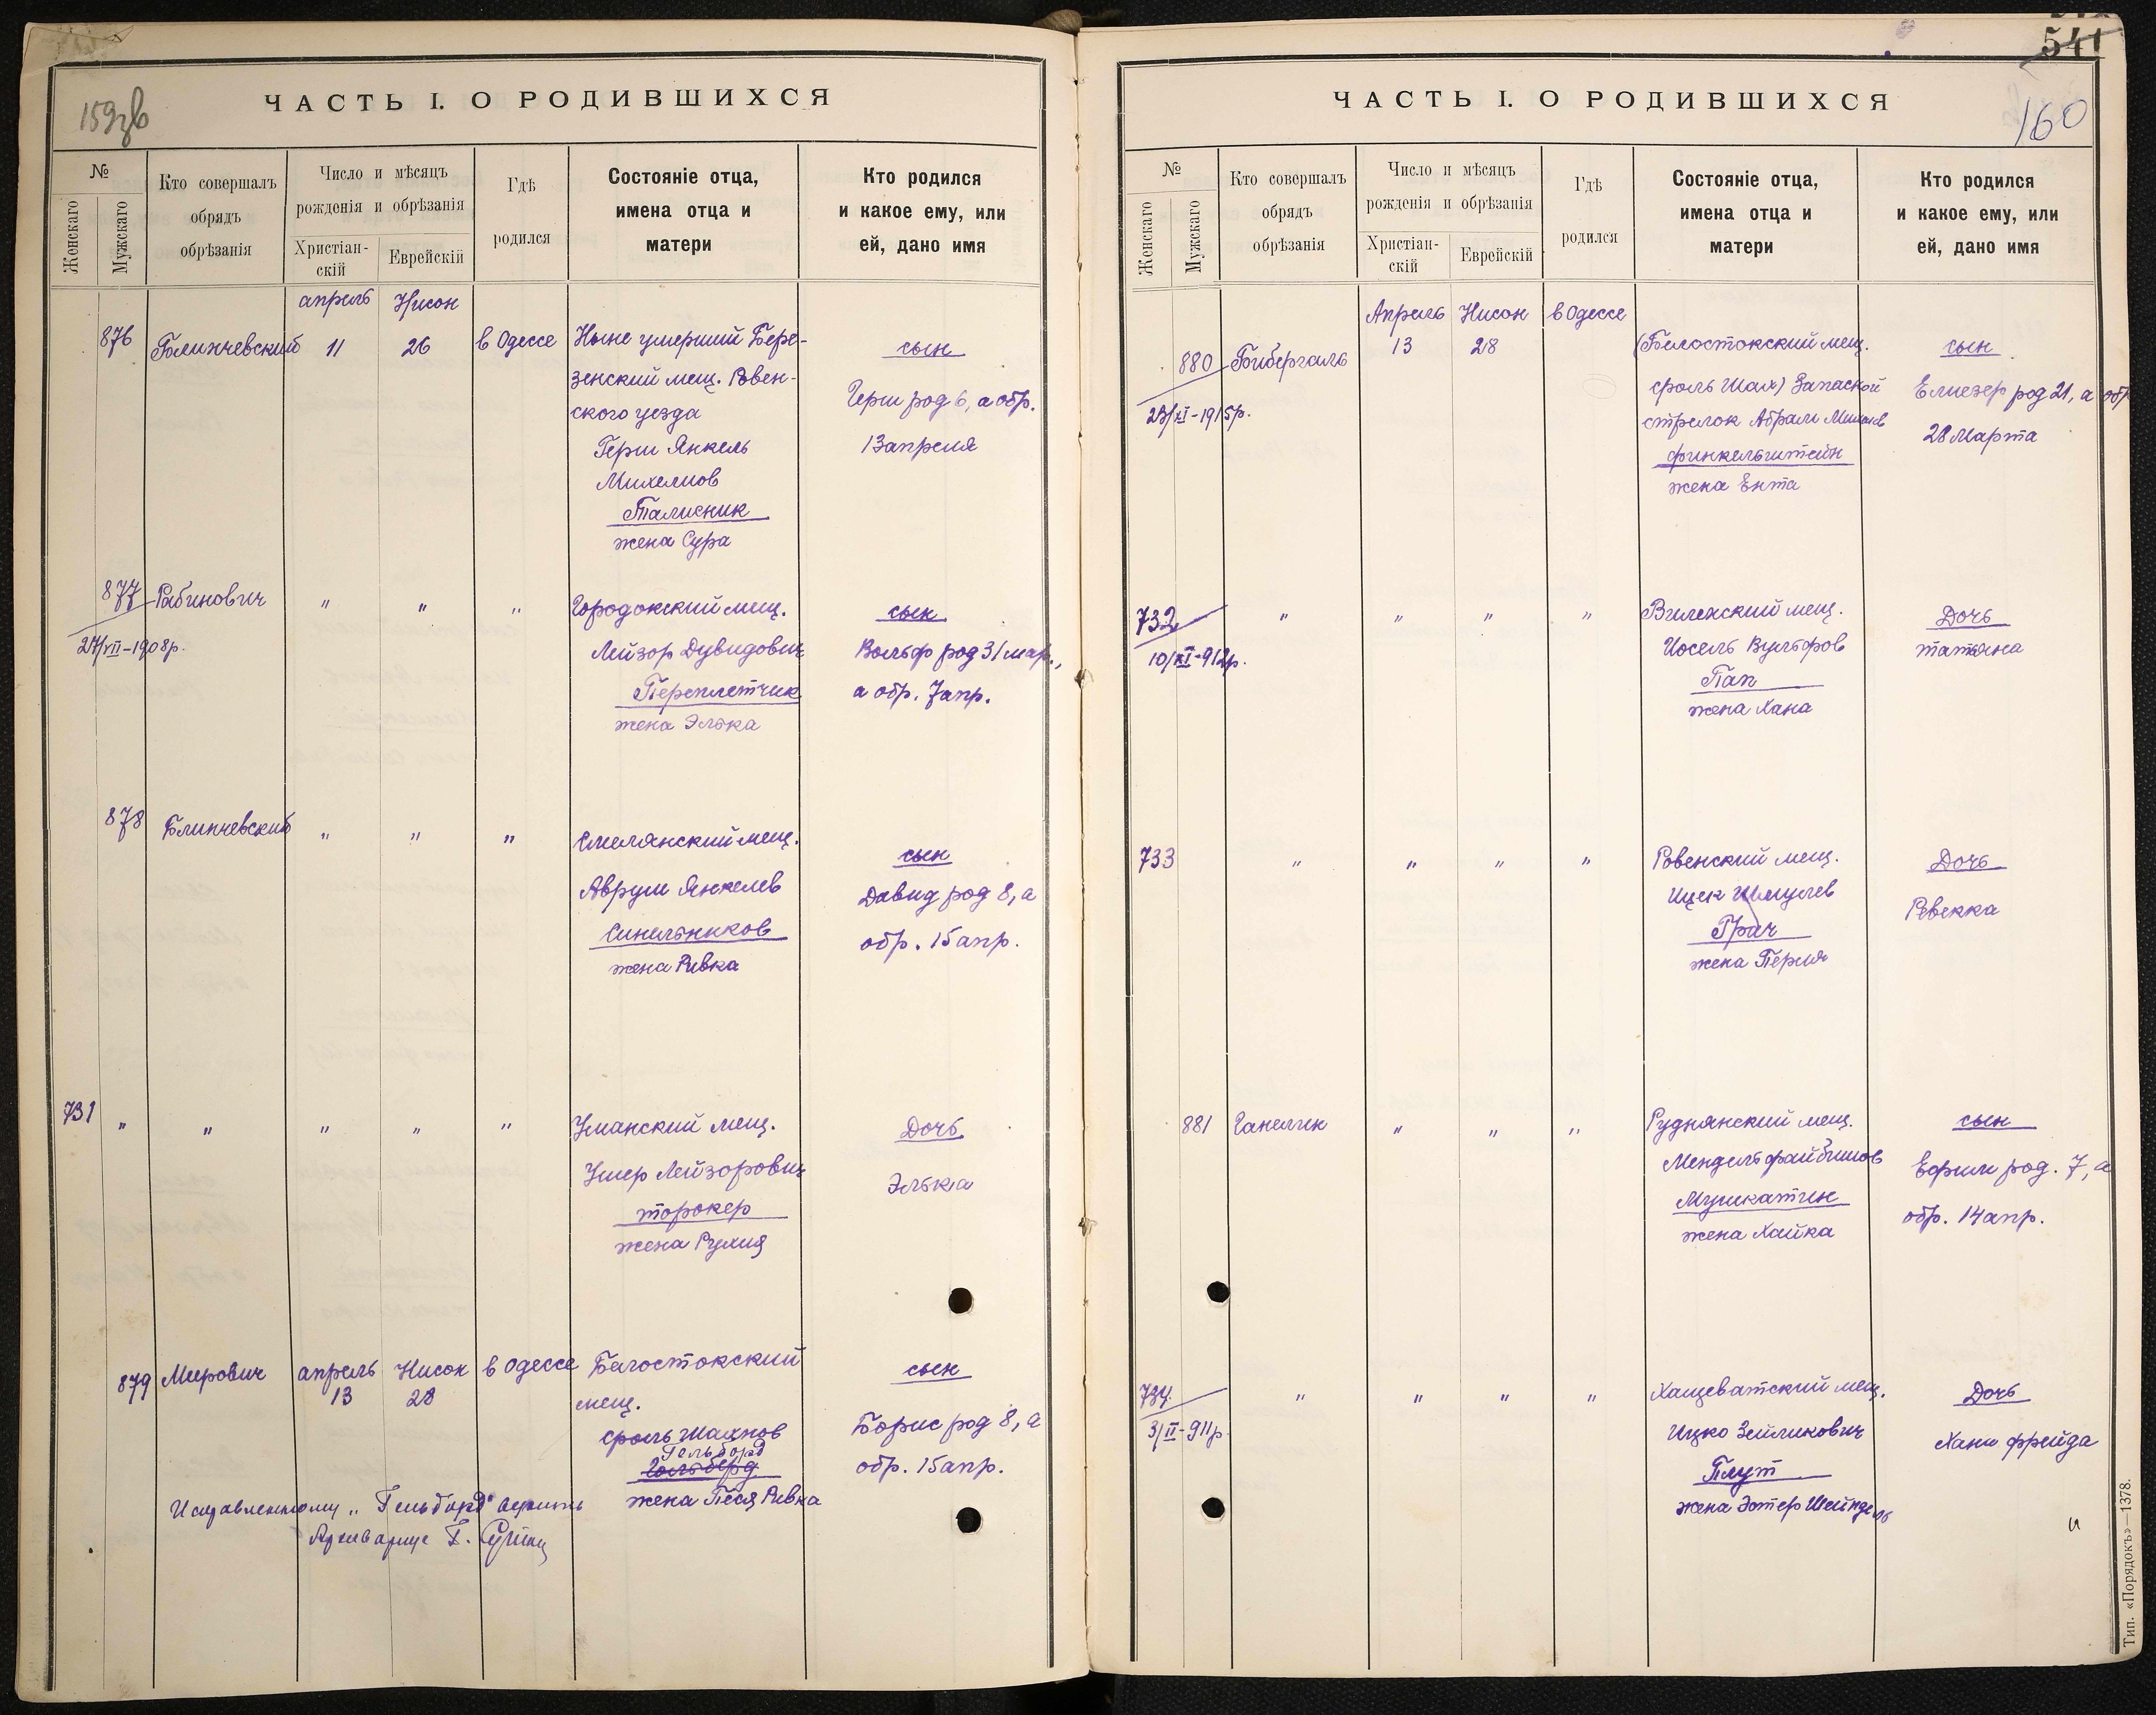 159зв
ЧАСТЬ I. О РОДИВШИХСЯ
№
Женскаго
Мужскаго
Кто совершалъ
обрядъ
обрѣзанія
Число и мѣсяцъ
рожденія и обрѣзанія
Христіан-
скій
Еврейскій
Гдѣ
родился
Состояніе отца,
имена отца и
матери
Кто родился
и какое ему, или
ей, дано имя
апрель Нисон
876 Блинчевский 11 26 в Одессе Ныне умерший Бере- сын
зенский мещ. Ровен-
ского уезда Герш род 6, а обр.
Герш Янкель 13 апреля
Михелиов
Талисник
жена Сура
877 Рабинович " " " Городокский мещ. сын
27/VII-1908р. Лейзор Дувидович Вольф род 31 мар.,
Переплетчик а обр. 7 апр.
жена Элька
878 Блинчевский " " " Смелянский мещ. сын
Аврум Янкелев Давид род 8, а
Синельников обр. 15 апр.
жена Ривка
731 " " " " " Уманский мещ. Дочь
Ушер Лейзорович Элька
торокер
жена Рухля
879 Мирович апрель Нисон в Одессе Белостокский сын
13 28 мещ.
сроль Шахнов Борис род 8, а
Гельборд
Гольберд обр. 15 апр.
жена Песя Ривка
Исправленному „Гельборд" верить
Архивариус Г.
541
160
ЧАСТЬ I. О РОДИВШИХСЯ
№
Женскаго
Мужскаго
Кто совершалъ
обрядъ
обрѣзанія
Число и мѣсяцъ
рожденія и обрѣзанія
Христіан-
скій
Еврейскій
Гдѣ
родился
Состояніе отца,
имена отца и
матери
Кто родился
и какое ему, или
ей, дано имя
Апрель Нисон в Одессе
880 Бибергаль 13 28 (Белостокский мещ. сын
23/XI-1915р. сроль Шах) Запасной Елиезер род 21, а обр
стрелок Абрам 28 Марта
финкельштейн
жена Ента
732 " " " " Виленский мещ. Дочь
10/XI-912р. Иосель Вульфов татьяна
Пап
жена Хана
733 " " " " Ровенский мещ. Дочь
Ицек Шмулев Ревекка
Грач
жена Перля
881 Ганелин " " " Руднянский мещ. сын
Мендель файбишов Ефим род. 7, а
Мушкатин обр. 14 апр.
жена Хайка
734 " " " " Хащеватский мещ. Дочь
3/II-911р Ицко Зейликович Хана фрейда
Плут
жена Эстер Шейндель
Тип. «Порядокъ»—1378.